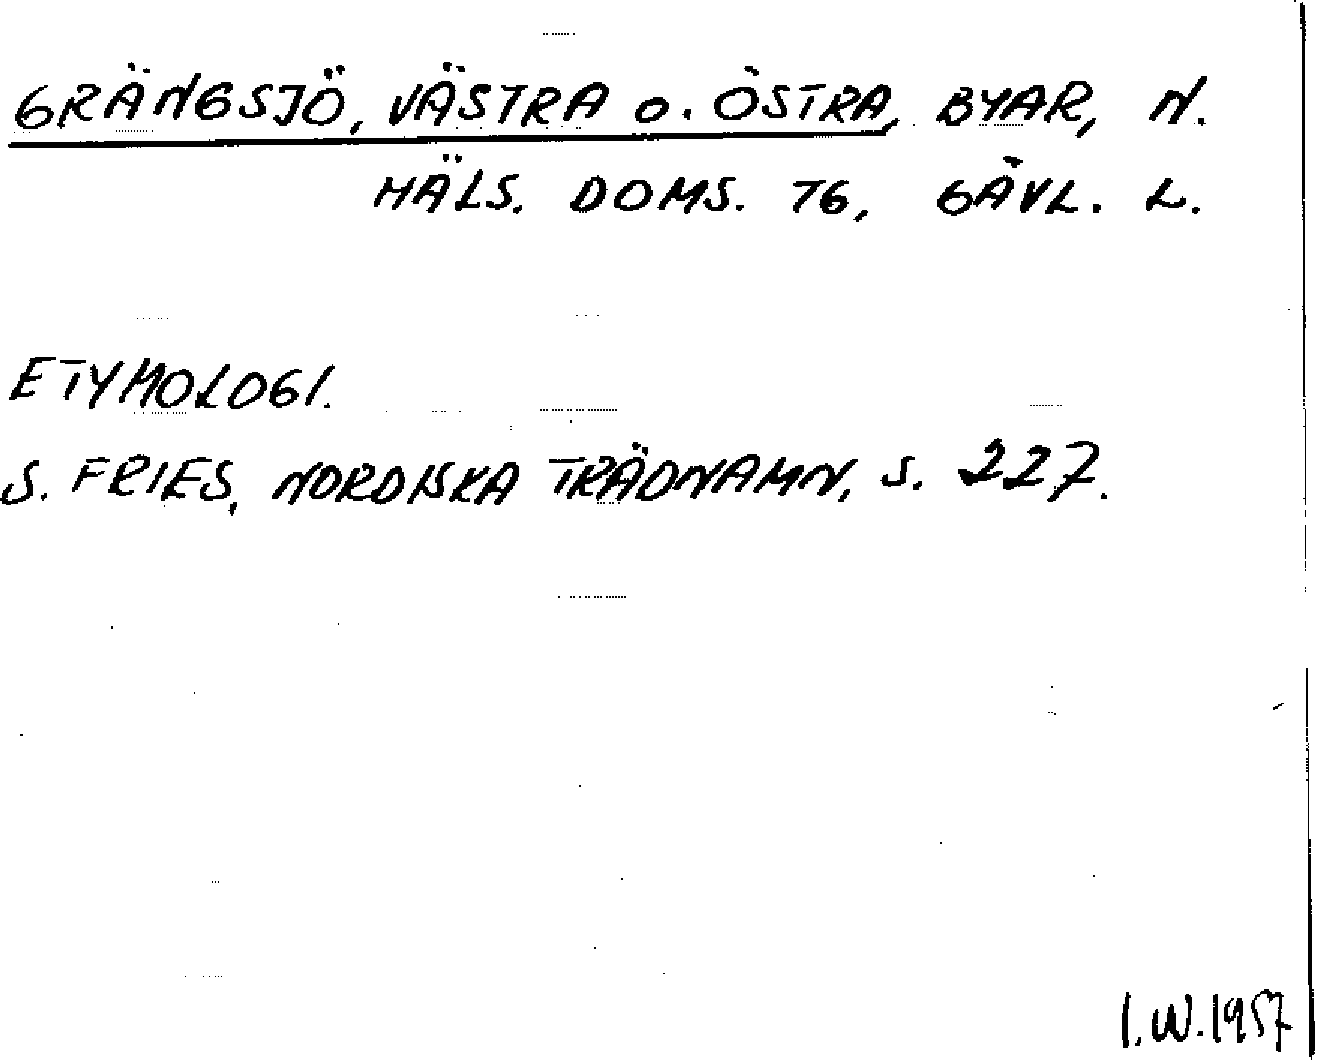 GRÄNGSJÖ, VÄSTRA o. ÖSTRA, BYAR, N.
HÄLS. DOMS. 76, GÄVL. L.
ETYMOLOGI.
S. FRIES, NORDISKA TRÄDNAMN, S. 227.
I.W.1957